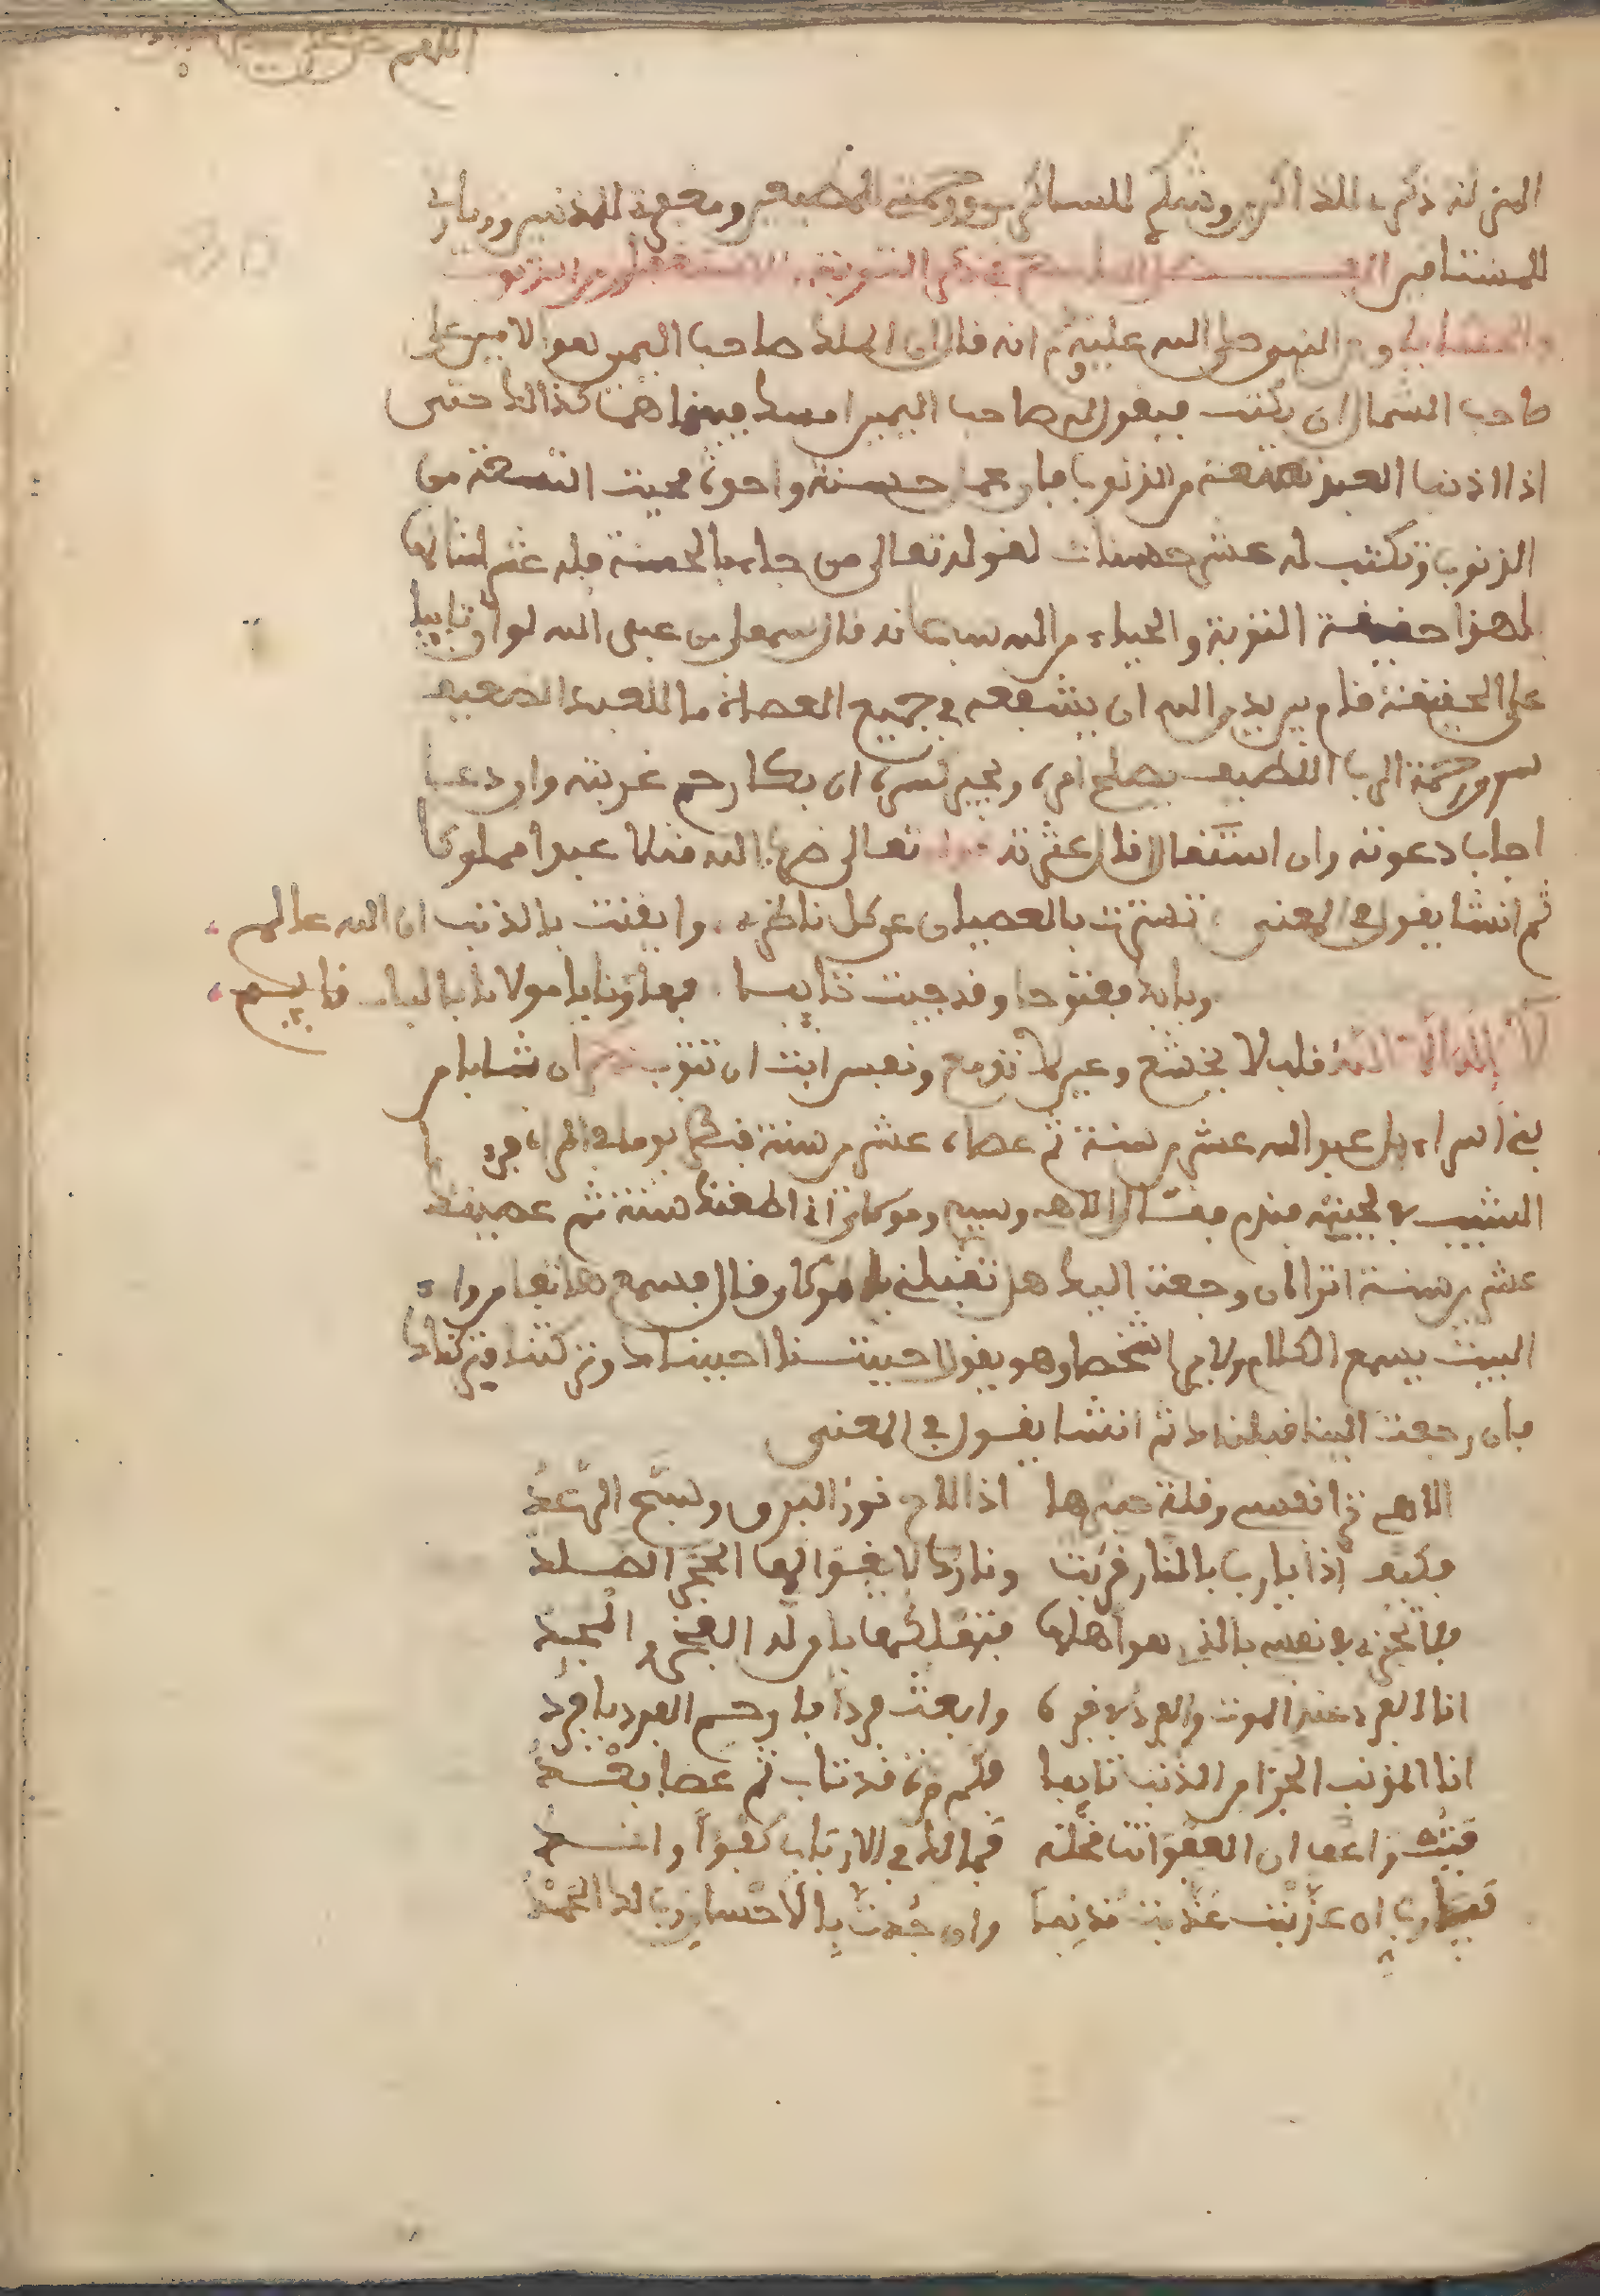 اللهم
المنزلة ذكرى للذاكرين وشكر للشاكرين ورحمة للمضعفين ومغفرة للمذنبين
للمستامين الفصل في ذكر التوبة الاستغفار من الذنوب
النبي صلى الله عليه وسلم انه قال ان الملك صاحب اليمين هو الامير على
صاحب الشمال ان يكتب فيقول له صاحب اليمين امسك فبينما هما كذالك حتى
اذا اذنب العبد تسعة من الذنوب فان عمل حسنة واحدة محيت التسعة من
الذنوب وتكتب له عشر حسنات لقوله تعالى من جاء بالحسنة فله عشر امثالها
لهذا حقيقة التوبة والحياء من الله سبحانه قال من عصى الله لو تايبا
على الحقيقة قام بين يدي الله ان يشفعه في جميع العصاة ما للعبد الضعيف
سوى رحمة الرب اللطيف يصلح امره ويجبر كسره ان بكا رحم غربته وان دعا
اجاب دعوته وان استقال اقال عثرته تعالى ضرب الله مثلا عبدا مملوكا
ثم انشا يقول في المعنى تسترت بالعصيان عن كل ناظر وايقنت بالذنب ان الله عالم
وبابك مفتوحا وقد جيت تايبا فها انا يا مولاي بالباب قايم
لا إله الا الله قلب لا يخشع وعين لا تدمع ونفس ابت ان تتوب ان شابا من
بني اسراءيل عبد الله عشرين سنة ثم عصاه عشرين سنة فنظر يوما في المراة فرءا
الشيب في لحيته فندم فقال الاهي وسيدي ومولاي اني اطعتك سنة ثم عصيتك
عشرين سنة اتراني ان رجعت اليك هل تقبلني يا مولاي قال فسمع هاتفا من وراء
البيت يسمع الكلام ولا يرا الشخص وهو يقول احببتنا احببناك وتركتنا فتركناك
فان رجعت الينا قبلناك ثم انشا يقول في المعنى
الاهي ترا نفسي وقلة صبرها اذا لاح نور البرق وسبح الرعد
فكيف إذا يا رب بالنار قربت ونارك لا يقوا لها الحجر الصلد
فلا تجزي نفسي بالذي هو اهلها فتهلكها يا من له الفخر والمجد
انا الفرد عند الموت والفرد في قبره وابعث فردا فارحم الفرد يا فرد
انا المذنب الجزا من الذنب تايبا فكم مرة قد تاب ثم عصا بعد
واعف ان العفو انت محله فما لك في الارباب كفوا ولا ند
فيا رب ان عذبت عذبت مذنبا وان جدت بالاحسان رب لك الحمد